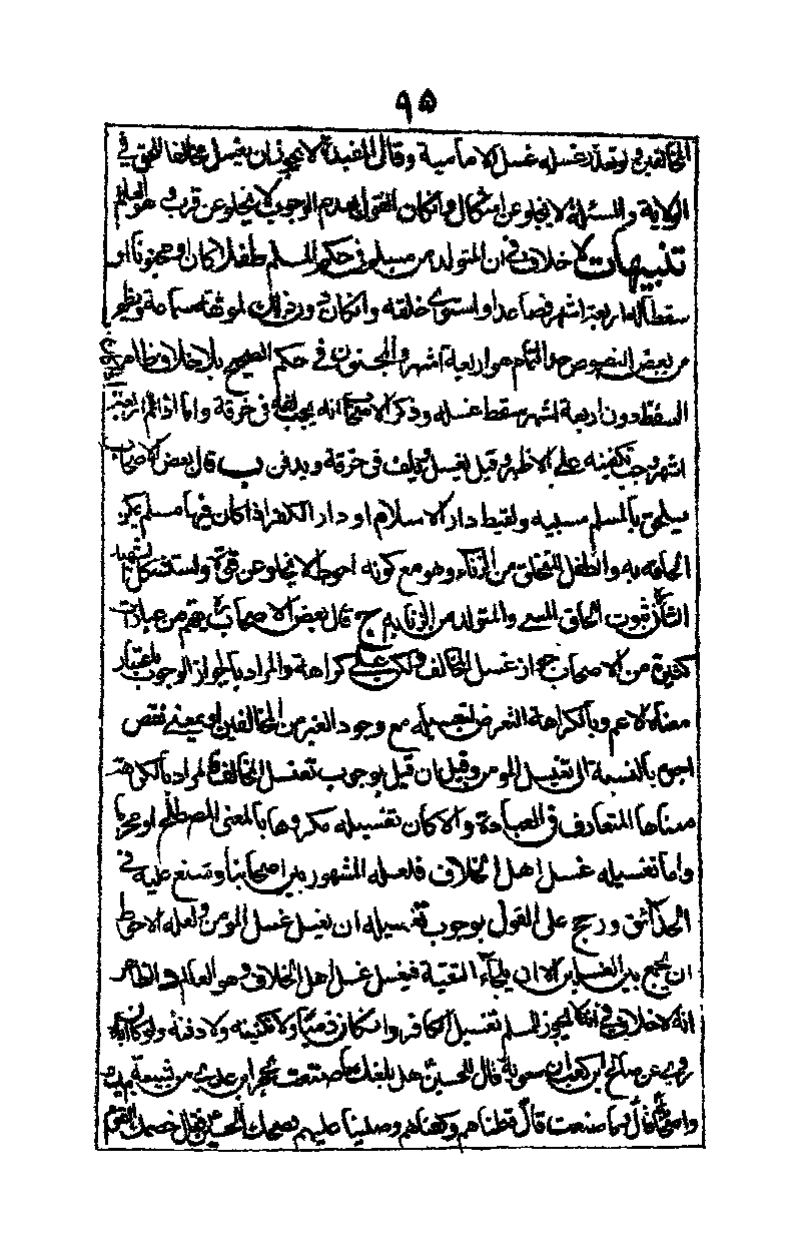 ٩٥
المخالفين ولو تعذر غسله غسل الامامية وقال المفيد لا يجوز ان يغسل مخالفا للحق في
الولاية والمسئلة لا يخلو عن اشكال وان كان القول بعدم الوجوب لا يخلو عن قرب وهو العالم
تنبيهات لا خلاف في ان المتولد من مسلم في حكم المسلم طفلا كان او مجنونا او
سقطا له اربعة اشهر فصاعدا او استوى خلقه وان كان ورد في ذلك لموثقة سماعة ويظهر
من بعض النصوص حد التمام هو اربعة اشهر والمجنون في حكم الصحيح بلا خلاف ظاهر
السقط دون اربعة اشهر سقط غسله وذكر الاصحاب انه يجب لفه في خرقة واما اذا تم اربعة
اشهر وجب تكفينه على الاظهر وقيل يغسل ويلف في خرقة ويدفن ب قال بعض الاصحاب
يلحق بالمسلم مسبيه ولقيط دار الاسلام او دار الكفر اذا كان فيها مسلم يمكن
الحاقه به والطفل المتخلق من الزناء وهو مع كونه احوط لا يخلو عن قوة واستشكل الشهيد
الثاني ثبوت الحاق المسبي والمتولد من الزنا به ج قال بعض الاصحاب يفهم من عبارات
كثيرة من الاصحاب جواز غسل المخالف ولكن على كراهة والمراد بالجواز الوجوب باعتبار
معناه الاعم وبالكراهة التعرض لتغسيله مع وجود الغير من المخالفين او بمعنى نقص
اجره بالنسبة الى تغسيل المومن وقيل ان قيل بوجوب تغسل المخالف فالمراد بالكراهة
معناها المتعارف في العبادة والا كان تغسيله مكروها بالمعنى المصطلح او محرما
واما تغسيله غسل اهل الخلاف فلعله المشهور بين اصحابنا وشنع عليه في
الحدائق ورجح على القول بوجوب تغسيله ان يغسل غسل المومن ولعله الاحوط
ان يجمع بين الغسلين الا ان يلجأ التقية فيغسل غسل اهل الخلاف وهو العالم د الظاهر
انه لا خلاف في انه لا يجوز للمسلم تغسيل الكافر وان كان ذميا ولا تكفينه ولا دفنه ولو كان اباه
روى عن صالح ابن كيسان معوية قال للحسين هل بلغك ما صنعت بحجر ابن عدي من شيعة ابيك
واصحابه قال فما صنعت قال قتلناهم وكفناهم وصلينا عليهم فضحك الحسين فقال خصمك القوم